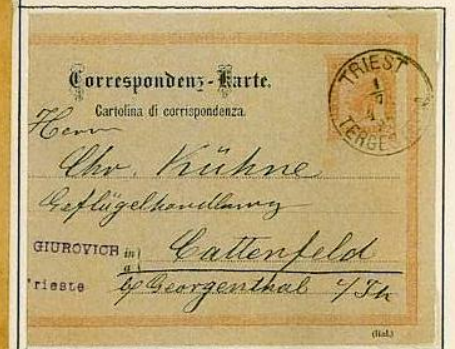 Correspondenz-Karte.
Cartolina di corrispondenza.
TRIEST
TERGES
Herrn
Chr. Kühne
Geflügelhandlung
GIUROVICH in Cattenfeld
rieste
b/ Georgenthal i/Th
(Ital.)